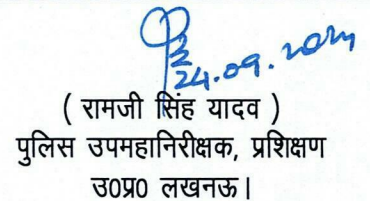 24.09.2024
( रामजी सिंह यादव )
पुलिस उपमहानिरीक्षक, प्रशिक्षण
उ0प्र0 लखनऊ।